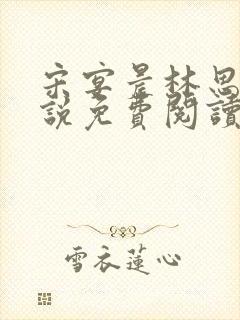 宋宴是林思
說免費閱讀
雪衣蓮心